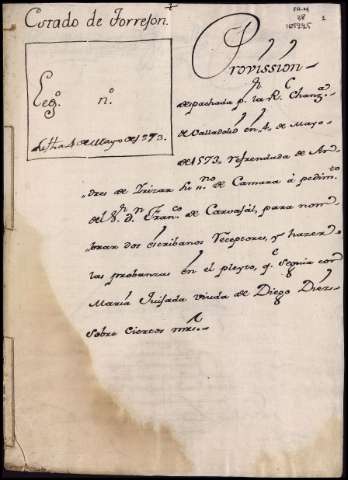 Estado de Torrejon.
Leg.º n.º
fecha 4 de Mayo de 1573.
Provission
despachada p.r la R.l Chanz.a
de Valladolid en 4. de Mayo
de 1573. refrendada de An
dres de Irizar ss.no de Camara à pedim.to
del S.r D.n Fran.co de Carvajal, para nom
brar dos escribanos Receptores, y hazer
las probanzas en el pleyto, q.e Seguia con
Maria Quijada viuda de Diego Diez
Sobre Ciertos mrs.